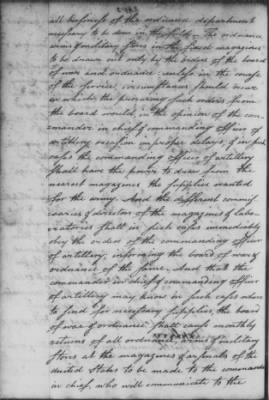 all business of the ordnance department
necessary to be done in the field — The ordnance
arms & military stores in the fixed magazines
to be drawn out only by the orders of the board
of war and ordnance: unless in the course
of the service, circumstances should occur
in which the procuring such orders from
the board would, in the opinion of the com-
mander in chief, & commanding officer of
artillery occasion improper delays, & in such
cases the commanding officer of artillery
shall have the power to draw from the
nearest magazines the supplies wanted
for the army. And the different commis-
saries & director of the magazines & labo-
ratories shall in such cases immediately
obey the orders of the commanding officer
of artillery, informing the board of war &
ordnance of the same. And that the
commander in chief & commanding officer
of artillery may know in such cases where
to send for necessary supplies, the board
of war & ordnance shall cause monthly
returns of all ordnance, arms & military
stores at the magazines & arsenals of the
United States to be made to the commander
in chief, who will communicate to the